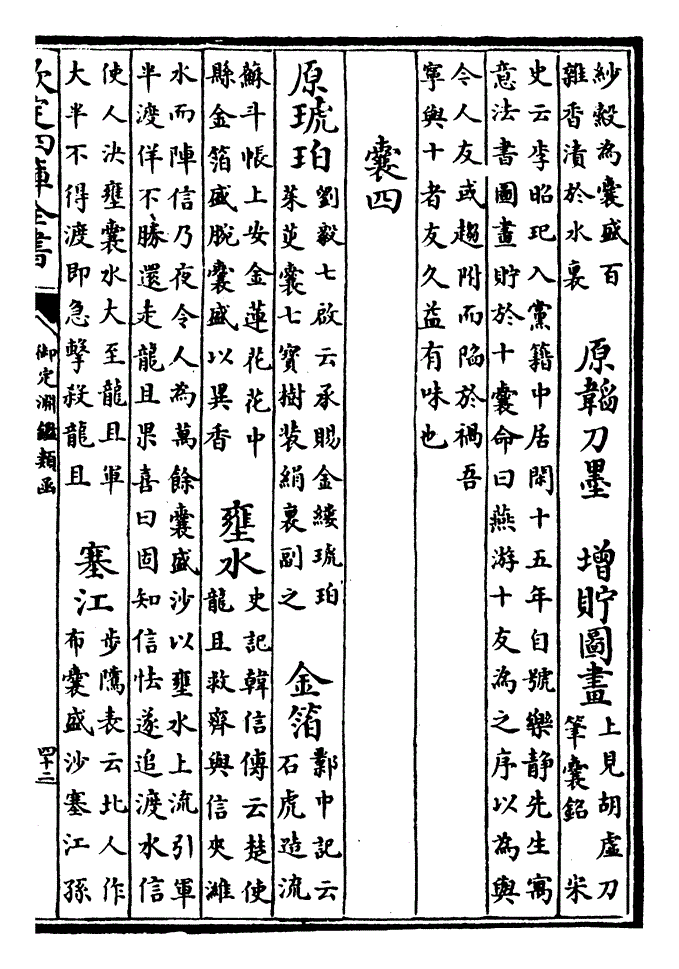 紗縠為囊盛百
雜香漬於水裏
原韜刀墨
增貯圖畫
上見胡虛刀
筆囊銘 宋
史云李昭玘入黨籍中居閑十五年自號樂静先生寓
意法書圖畫貯於十囊命曰燕游十友為之序以為與
令人友或趨附而陷於禍吾
寧與十者友久益有味也
囊四
原琥珀
劉毅七啟云承賜金縷琥珀
茱萸囊七寶樹装絹裏副之
金箔
鄴中記云
石虎造流
蘇斗帳上安金蓮花花中
縣金箔盛腕囊盛以異香
壅水
史記韓信傳云楚使
龍且救齊與信夾濰
水而陣信乃夜令人為萬餘囊盛沙以壅水上流引軍
半渡佯不勝還走龍且果喜曰固知信怯遂追渡水信
使人決壅囊水大至龍且軍
大半不得渡即急擊殺龍且
塞江
步隲表云北人作
布囊盛沙塞江孫
欽定四庫全書
御定淵鑑類函
四十二